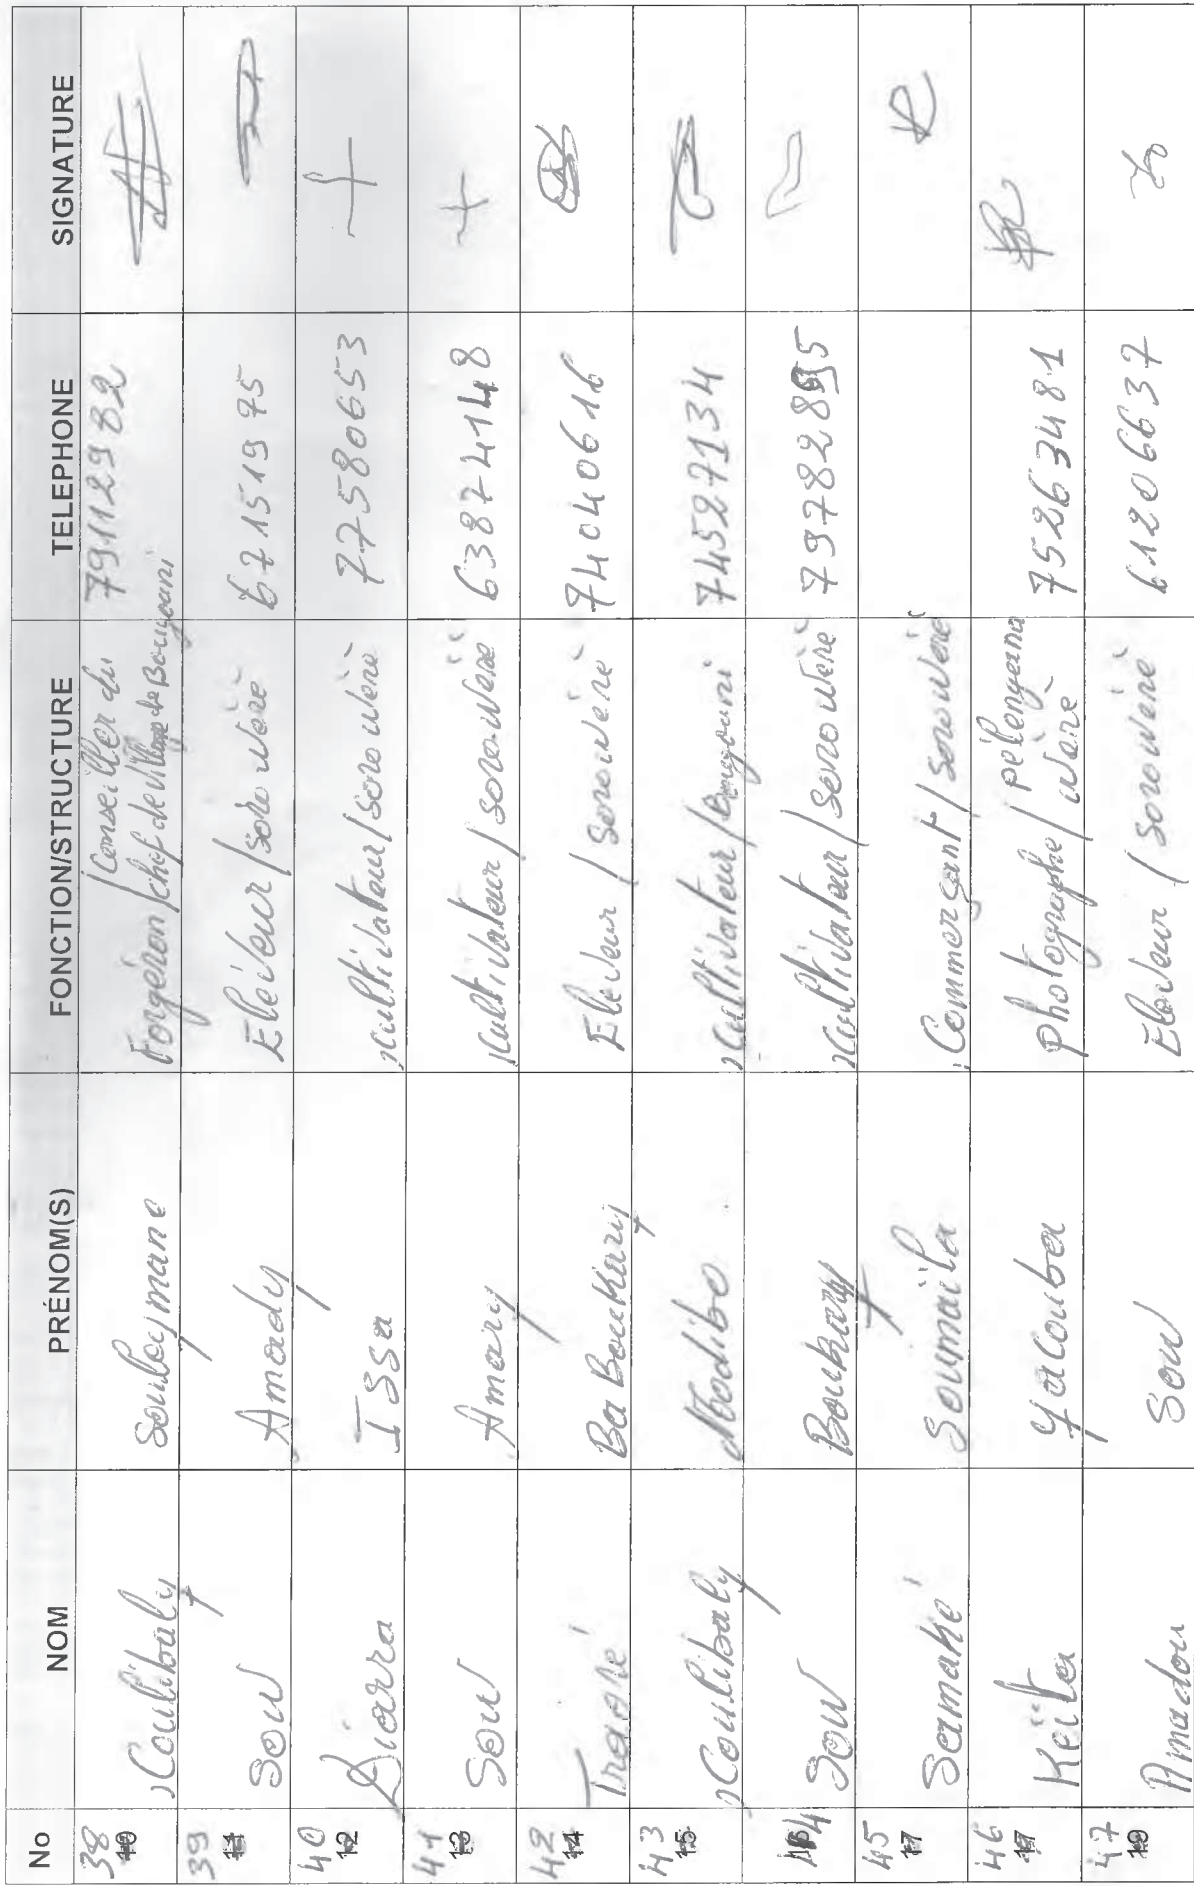 No NOM PRÉNOM(S) FONCTION/STRUCTURE TELEPHONE SIGNATURE
38 10 Coulibaly Souleymane Forgeron / Conseiller du chef de village de Bougouni 79112982
39 11 Sow Amady Eleveur / Soro wèrè 67151975
40 12 Diarra Issa Cultivateur / Soro wèrè 77580653
41 13 Sow Amary Cultivateur / Soro wèrè 63874148
42 14 Traoré Ba Boukary Eleveur / Soro wèrè 74040616
43 15 Coulibaly Modibo Cultivateur / Bougouni 74527134
44 Sow Boukary Cultivateur / Soro wèrè 797828
45 17 Samaké Soumaïla Commerçant / Soro wèrè
46 Keïta Yacouba Photographe / pélengana wèrè 75263481
47 Amadou Sow Eleveur / Soro wèrè 61206637